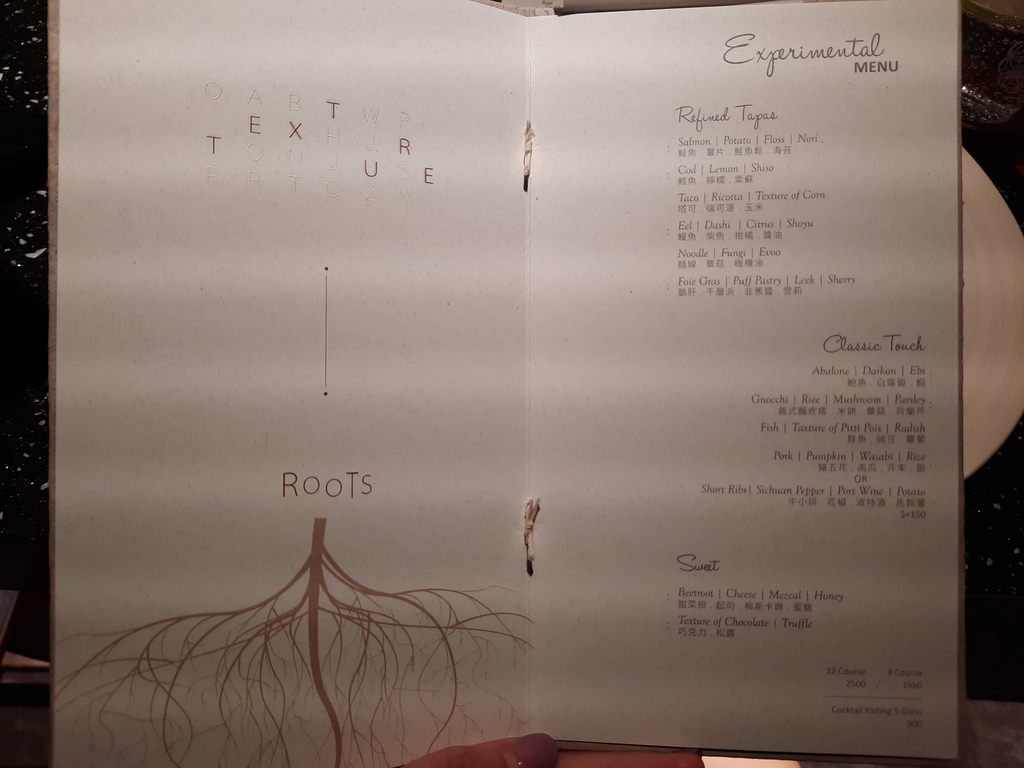 O A B T W P
E X H
T R
U E
ROOTS
Experimental
MENU
Refined Tapas
Salmon | Potato | Floss | Nori
鮭魚 . 薯片 . 鮭魚鬆 . 海苔
Cod | Lemon | Shiso
鱈魚 . 檸檬 . 紫蘇
Taco | Ricotta | Texture of Corn
塔可 . 瑞可達 . 玉米
Eel | Dashi | Citrus | Shoyu
鰻魚 . 柴魚 . 柑橘 . 醬油
Noodle | Fungi | Evoo
麵線 . 蕈菇 . 橄欖油
Foie Gras | Puff Pastry | Leek | Sherry
鵝肝 . 千層派 . 韭蔥醬 . 雪莉
Classic Touch
Abalone | Daikon | Ebi
鮑魚 . 白蘿蔔 . 蝦
Gnocchi | Rice | Mushroom | Parsley
義式麵疙瘩 . 米餅 . 蕈菇 . 荷蘭芹
Fish | Taxture of Pitti Pois | Radish
鮮魚 . 豌豆 . 蘿蔔
Pork | Pumpkin | Wasabi | Rice
豬五花 . 南瓜 . 芥末 . 飯
OR
Short Ribs| Sichuan Pepper | Port Wine | Potato
牛小排 . 花椒 . 波特酒 . 馬鈴薯
$+150
Sweet
Beetroot | Cheese | Mezcal | Honey
甜菜根 . 起司 . 梅斯卡爾 . 蜜糖
Texture of Chocolate | Truffle
巧克力 . 松露
12 Course 9 Course
2500 / 1950
Cocktail Pairing 5 Glass
900